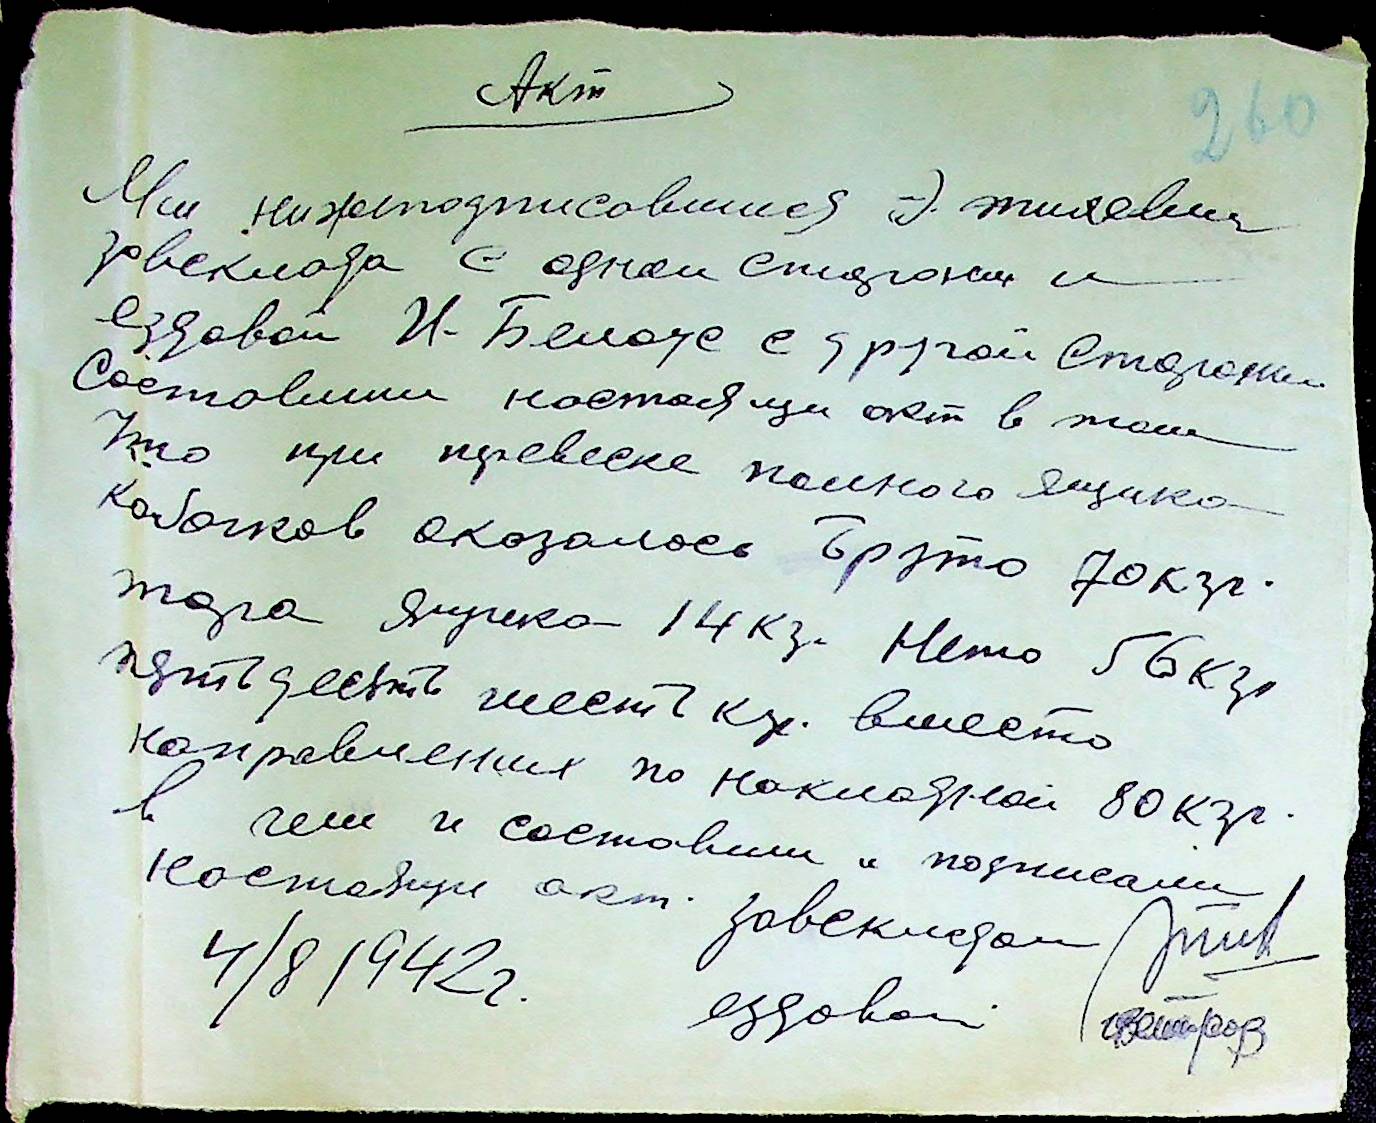 Акт
260
Мы нижеподписавшиеся Э. тилевич
завсклада с одной стороны и
ездовой И. Белоус с другой стороны
составили настоящи акт в том
что при превеске полного ящика
кабачков оказалось Бруто 70 кгр.
тара ящика 14 кг. Нето 56 кгр
пятьдесять шесть кг. вместо
направлених по накладной 80 кгр.
в чем и составили и подписали
настоящи акт. завскладом
4/8 1942 г.
ездовой